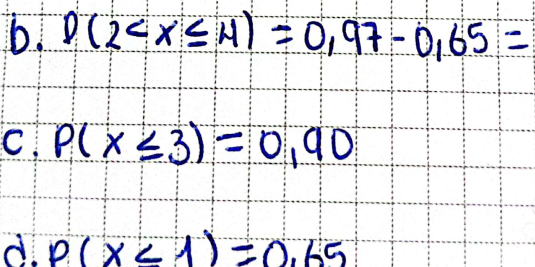 b. P(2<x≤4) = 0,97-0,65 =
c. P(x≤3) = 0,90
d. P(x≤1) = 0,65